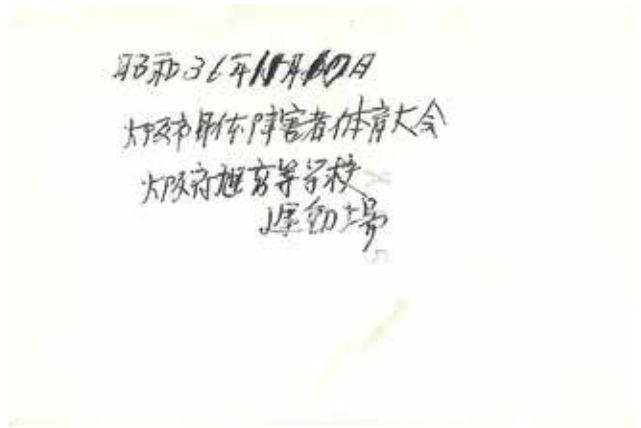 昭和36年 月 日
大阪市身体障害者体育大会
大阪府旭高等学校
運動場